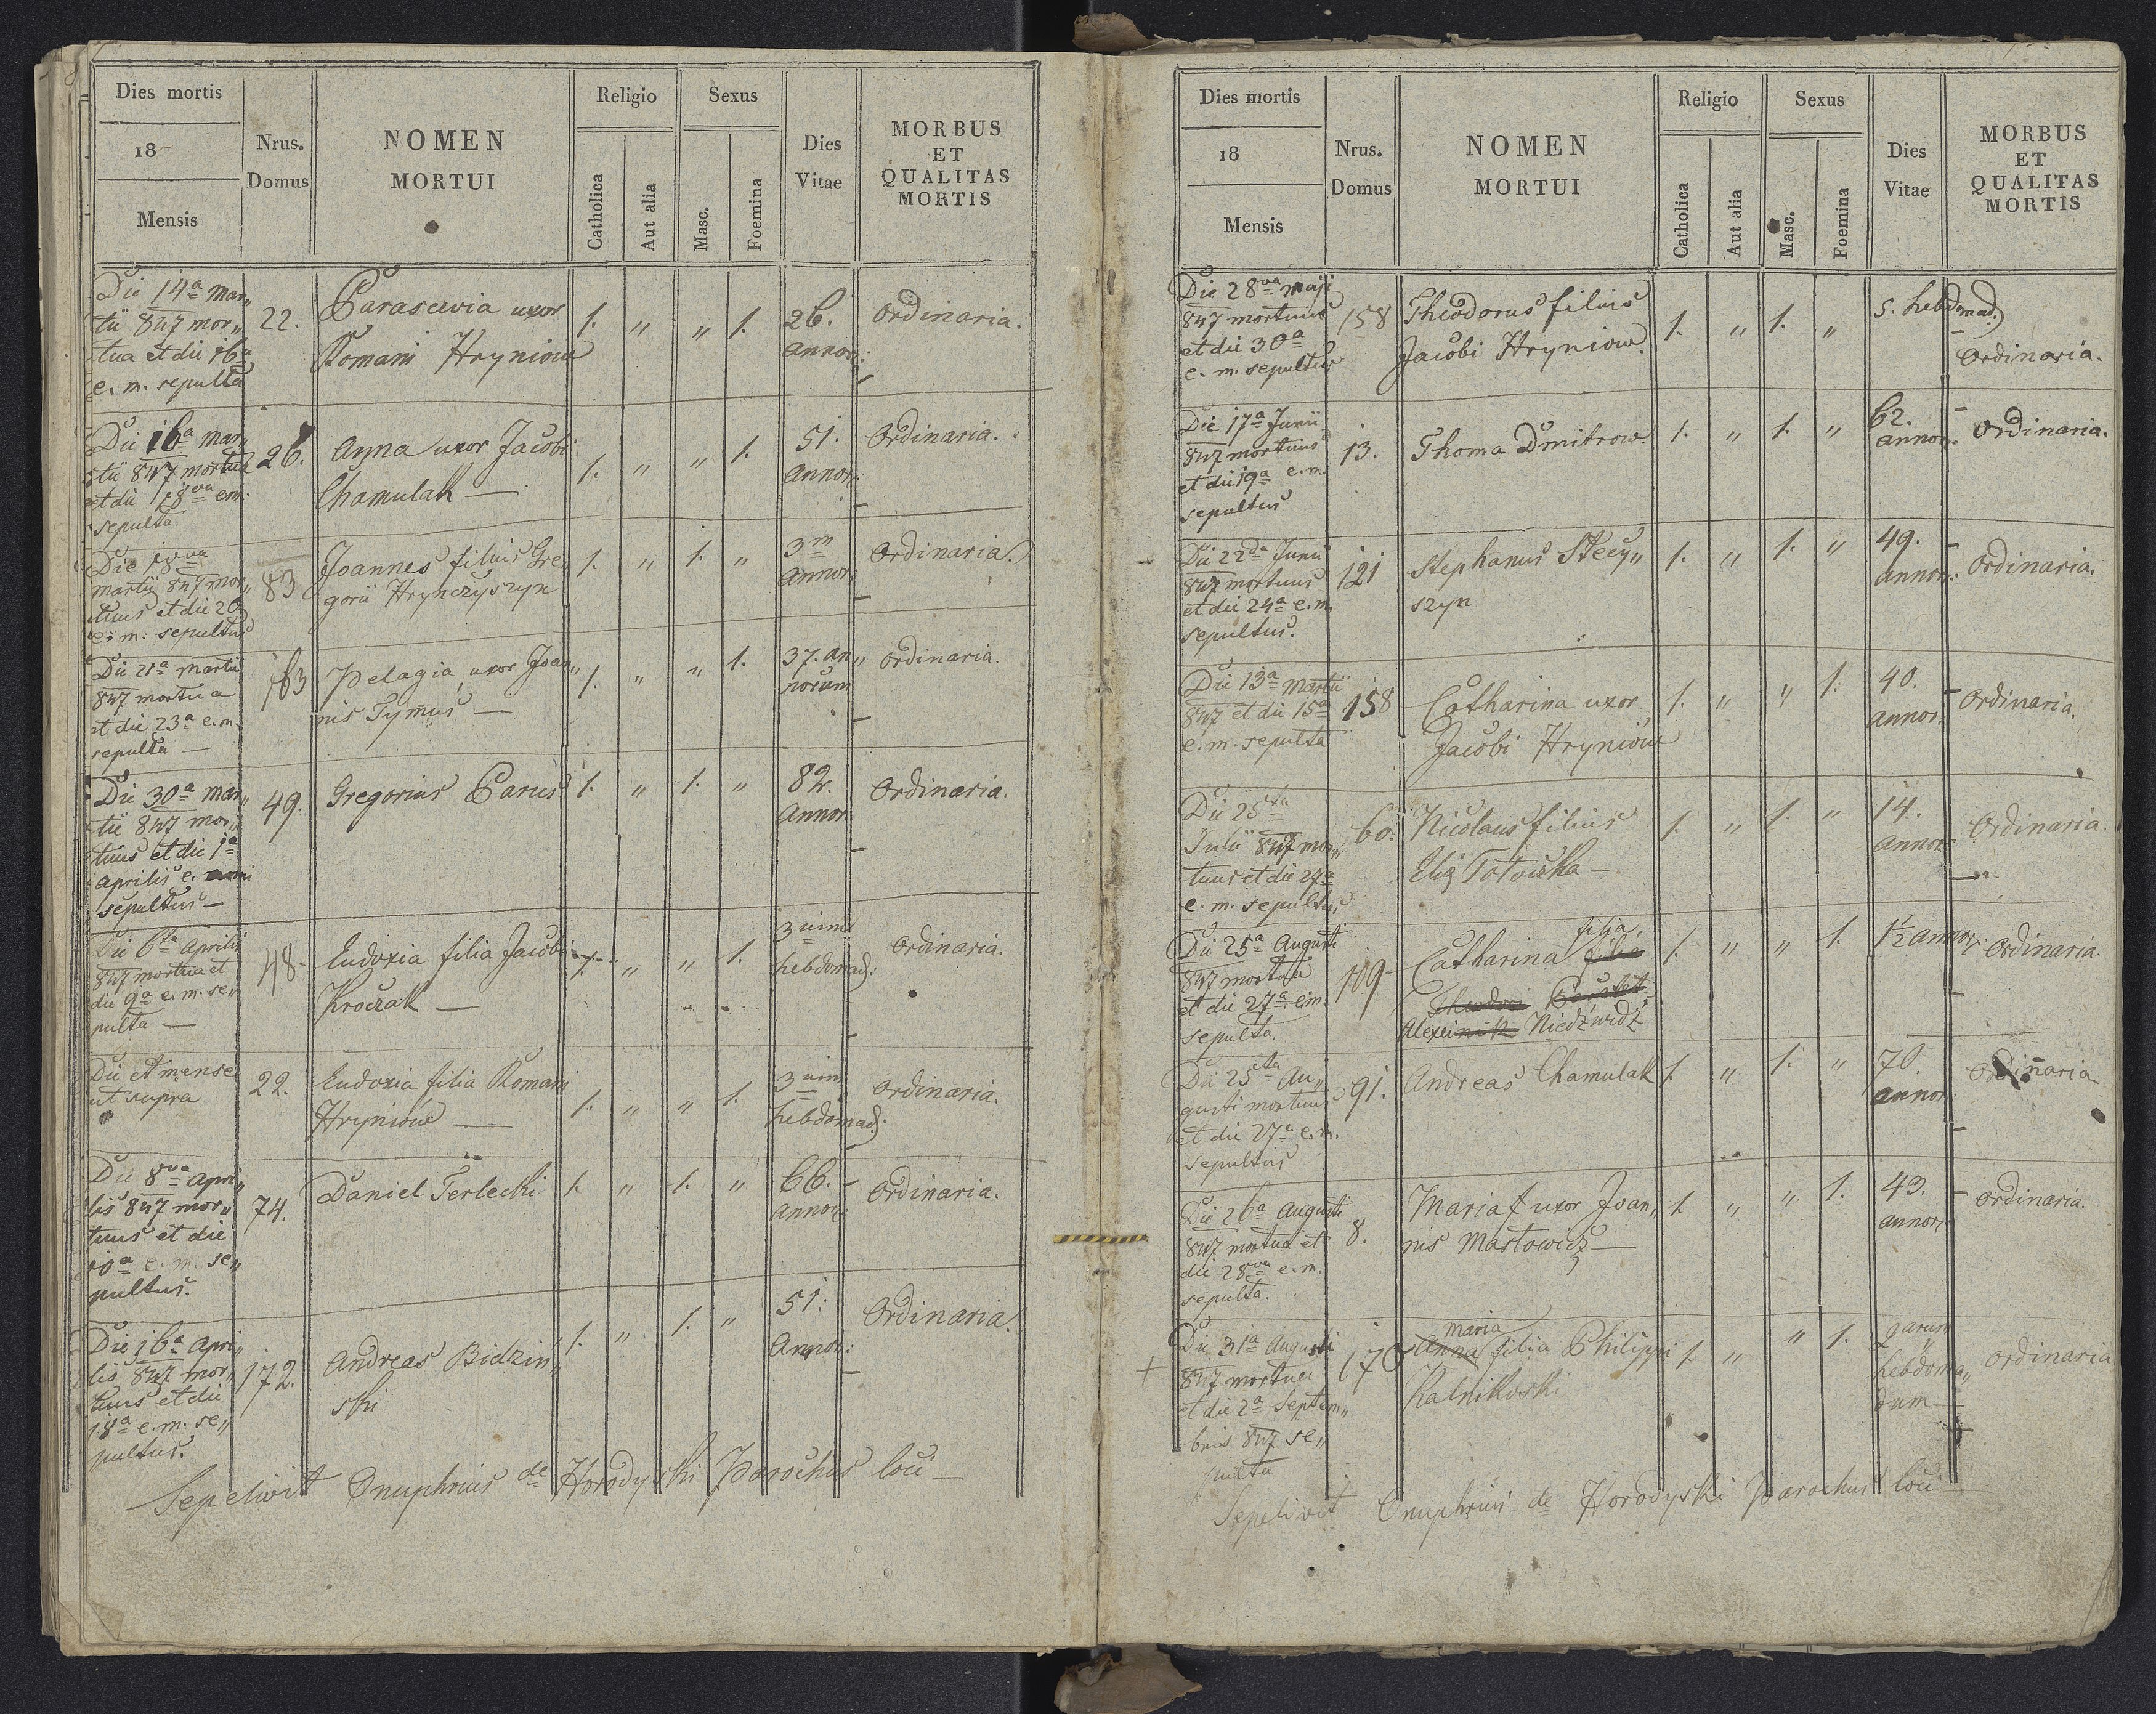 Dies mortis
18
Mensis
Nrus.
Domus
NOMEN
MORTUI
Religio
Catholica
Aut alia
Sexus
Masc.
Foemina
Dies
Vitae
MORBUS
ET
QUALITAS
MORTIS
Die 14a Mar„
tii 847 mor„
tua et die 16a
e. m. sepulta
22.
Parascevia uxor
Romani Hryniow
1. „ „ 1.
26.
annor:
Ordinaria.
Die 16a Mar„
tii 847 mortua
et die 18va e.m.
sepulta
26.
Anna uxor Jacobi
Chamulak —
1. „ „ 1.
51.
Annor:
Ordinaria.
Die 18va
martii 847 mor„
tuus et die 20
e: m: sepultus
83
Joannes filius Gre„
gorii Hrynczyszyn
1. „ 1. „
3m
annor:
Ordinaria.
Die 21a Martii
847 mortua
et die 23a e.m.
sepulta —
163
Pelagia uxor Joan„
nis Tymus —
1. „ „ 1.
37. an„
norum
Ordinaria.
Die 30a Mar„
tii 847 mor„
tuus et die 1a
Aprilis e. anni
sepultus —
49.
Gregorius Parus
1. „ 1. „
82.
Annor.
Ordinaria.
Die 6ta Aprilis
847 mortua et
die 9a e. m. se„
pulta —
48.
Eudoxia filia Jacobi
Kroczak —
1. „ „ 1.
3uim
hebdomad:
Ordinaria.
Die et mense
ut supra
22.
Eudoxia filia Romani
Hryniow —
1. „ „ 1.
3uim
hebdomad:
Ordinaria.
Die 8va Apri„
lis 847 mor„
tuus et die
10a e. m. se„
pultus.
74.
Daniel Terlecki
1. „ 1. „
66.
Annor:
Ordinaria.
Die 16a Apri„
lis 847 mor„
tuus et die
18a e. m. se„
pultus.
172.
Andreas Bidzin„
ski
1. „ 1. „
51:
Annor:
Ordinaria.
Sepelivit Onuphrius de Horodyski Parochus loci —
Dies mortis
18
Mensis
Nrus.
Domus
NOMEN
MORTUI
Religio
Catholica
Aut alia
Sexus
Masc.
Foemina
Dies
Vitae
MORBUS
ET
QUALITAS
MORTIS
Die 28va maji
847 mortuus
et die 30a
e. m. sepultus
158
Theodorus filius
Jacobi Hryniow.
1. „ 1. „
5. hebdomad:
Ordinaria.
Die 17a Junii
847 mortuus
et die 19a e.m.
sepultus
13.
Thoma Dmitrow.
1. „ 1. „
62.
annor:
Ordinaria.
Die 22da Junii
847 mortuus
et die 24a e. m.
sepultus.
121
Stephanus Stecy„
szyn
1. „ 1. „
49.
annor:
Ordinaria.
Die 13a Martii
847 et die 15a
e. m. sepulta
158
Catharina uxor
Jacobi Hryniow
1. „ „ 1.
40.
annor:
Ordinaria.
Die 25ta
Julii 847 mor„
tuus et die 27a
e. m. sepultus
60.
Nicolaus filius
1. „ 1. „
14.
annor:
Ordinaria.
Die 25a Augusti
847 mortua
et die 27a e.m.
sepulta.
109
filia
Catharina filia
Theodori
Niedźwidź
1. „ „ 1.
1½ annor:
Ordinaria.
Die 25ta Au„
gusti mortuus
et die 27a e. m.
sepultus
91.
Andreas Chamulak
1. „ 1. „
70.
annor:
Ordinaria.
Die 26a Augusti
847 mortua et
die 28va e. m.
sepulta.
8.
Maria uxor Joan„
nis Masłowicz —
1. „ „ 1.
43.
annor:
Ordinaria.
Die 31a Augusti
847 mortua
et die 2a Septem„
bris 847 se„
pulta
170
Maria
Anna filia Philippi
Kalnikoski
1. „ „ 1.
2arum
hebdoma„
dum —
Ordinaria
Sepelivit Onuphrius de Horodyski Parochus loci